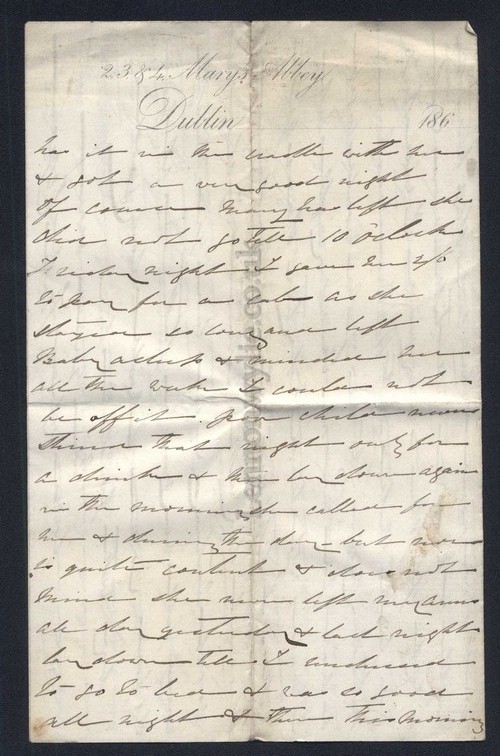 2.3.&4. Mary's Abbey
Dublin 186
has it in the cradle with her
& got a very good night
Of course Mary has left she
did not go till 10 oClock
Friday night I gave her 2/6
to pay for a cab as she
stayed so long and left
Baby asleep & minded her
all the week I could not
be off it poor child never
that night only for
a drink & then lay down again
in the morning she called for
me & during the day - but now
is quite content & does not
mind she never left my arms
all day yesterday & last night
lay down till I undressed
to go to bed & was so good
all night & then this morning